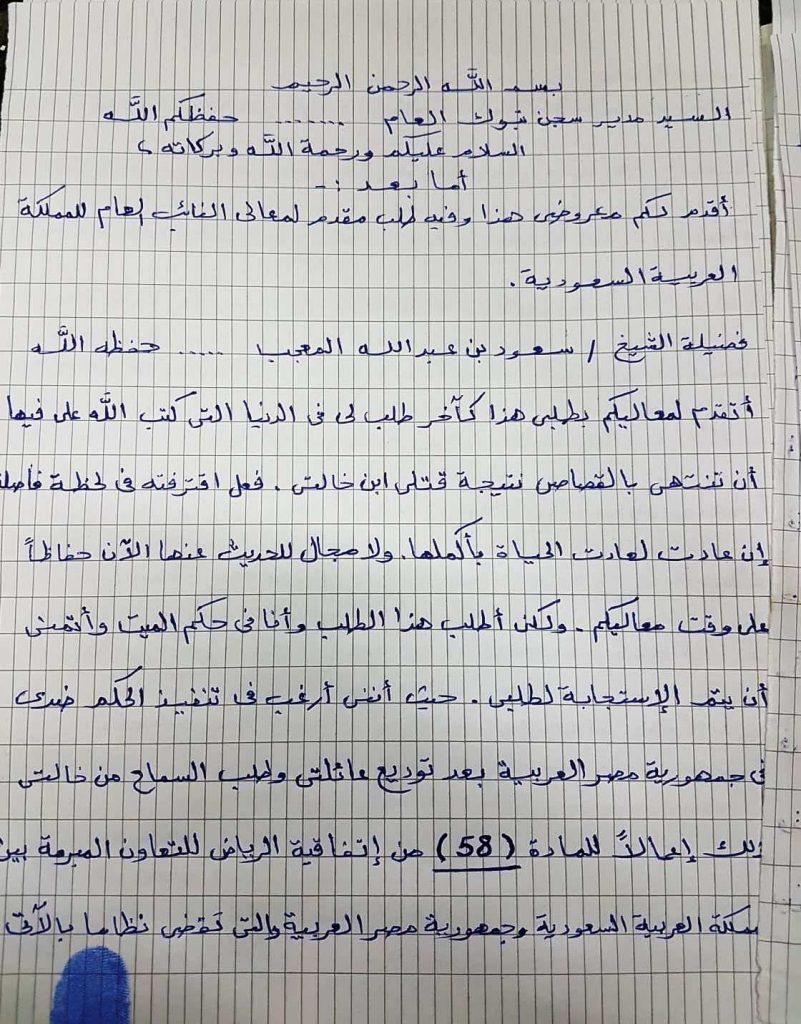 بسم الله الرحمن الرحيم
السيد مدير سجن تبوك العام ....... حفظكم الله
السلام عليكم ورحمة الله وبركاته ،
أما بعد :-
أقدم لكم معروضى هذا وفيه طلب مقدم لمعالى النائب العام للمملكة
العربية السعودية .
فضيلة الشيخ / سعود بن عبدالله المعجب ..... حفظه الله
أتقدم لمعاليكم بطلبى هذا كآخر طلب لى فى الدنيا التى كتب الله على فيها
أن تنتهى بالقصاص نتيجة قتلى ابن خالتى . فعل اقترفته فى لحظة فاصلة
إن عادت لعادت الحياة بأكملها . ولا مجال للحديث عنها الآن حفاظاً
على وقت معاليكم . ولكن أطلب هذا الطلب وأنا فى حكم الميت وأتمنى
أن يتم الإستجابة لطلبى . حيث أننى أرغب فى تنفيذ الحكم ضدى
فى جمهورية مصر العربية بعد توديع عائلتى وطلب السماح من خالتى
ذلك إعمالاً للمادة (58) من إتفاقية الرياض للتعاون المبرمة بين
مملكة العربية السعودية وجمهورية مصر العربية والتى تقضى نظاما بالآتى